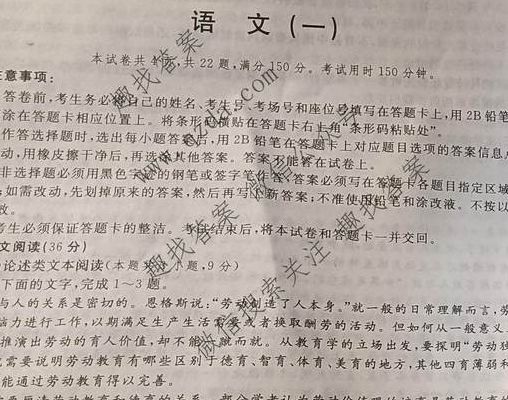 语 文（一）
本试卷共 4 共 22 题,满分 150 分。考试用时 150 分钟。
注意事项：
答卷前,考生务必 自己的姓名、考生号、考场号和座位号填写在答题卡上,用 2B 铅笔
涂在答题卡相应位置上。将条形码横贴在答题卡右上角“条形码粘贴处”。
作答选择题时,选出每小题答案后,用 2B 铅笔在答题卡上对应题目选项的答案信息
动,用橡皮擦干净后,再选涂其他答案。答案不能答在试卷上。
非选择题必须用黑色字迹的钢笔或签字笔作答,答案必须写在答题卡各题目指定区域
;如需改动,先划掉原来的答案,然后再写上新答案;不准使用铅笔和涂改液。不按以
效。
考生必须保证答题卡的整洁。考试结束后,将本试卷和答题卡一并交回。
文阅读(36 分)
论述类文本阅读(本题共 3 小题,9 分)
下面的文字,完成 1～3 题。
与人的关系是密切的。恩格斯说:“劳动创造了人本身。”就一般的日常理解而言,劳
脑力进行工作,以期满足生产生活需要或者换取酬劳的活动。但如何从一般意义
推演出劳动的育人价值,却不能 就而就。从教育学的立场出发,要探明“劳动独
就需要说明劳动教育有哪些区别于德育、智育、体育、美育的地方,其他四育薄弱和
能通过劳动教育得以完善。
趣找答案
www.qzda.com
微信搜索关注 趣找答案